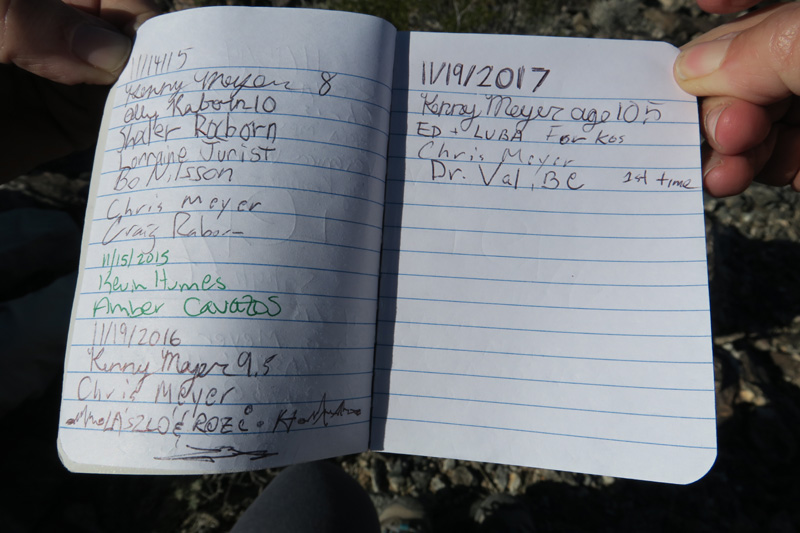 11/14/15
Kenny Meyer 8
Raborn 10
Shaler Raborn
Lorraine Jurist
Bo Nilsson
Chris Meyer
Craig Raborn
11/15/2015
Kevin Humes
Amber Cavazos
11/19/2016
Kenny Mayer 9.5
Chris Meyer
LÁSZLÓ & ROZÉ
11/19/2017
Kenny Meyer age 10.5
ED + LUBA FOR KOS
Chris Meyer
Dr. Val, BC 1st time